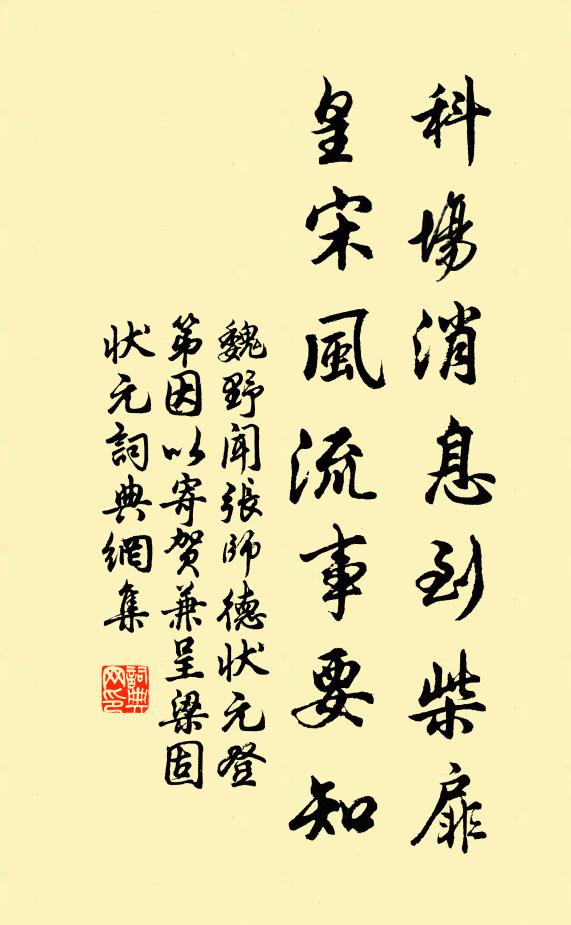 科場消息到柴扉
皇宋風流事要知
魏野闻張師德状元登
第因以寄贺兼呈梁固
状元詞典網集
詞典
网印